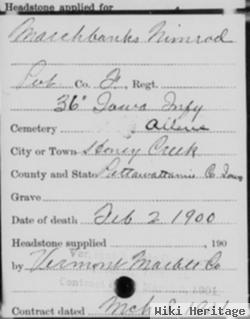 Headstone applied for
Marchbanks Nimrod
Pvt. Co. F, Regt.
36" Iowa Infy
Cemetery Allens
City or Town Stoney Creek
County and State Pottawattamie Co. Iowa
Grave
Date of death, Feb 2 1900
Headstone supplied, 190
by Vermont Marble Co
Contract dated Mch
Wiki Heritage